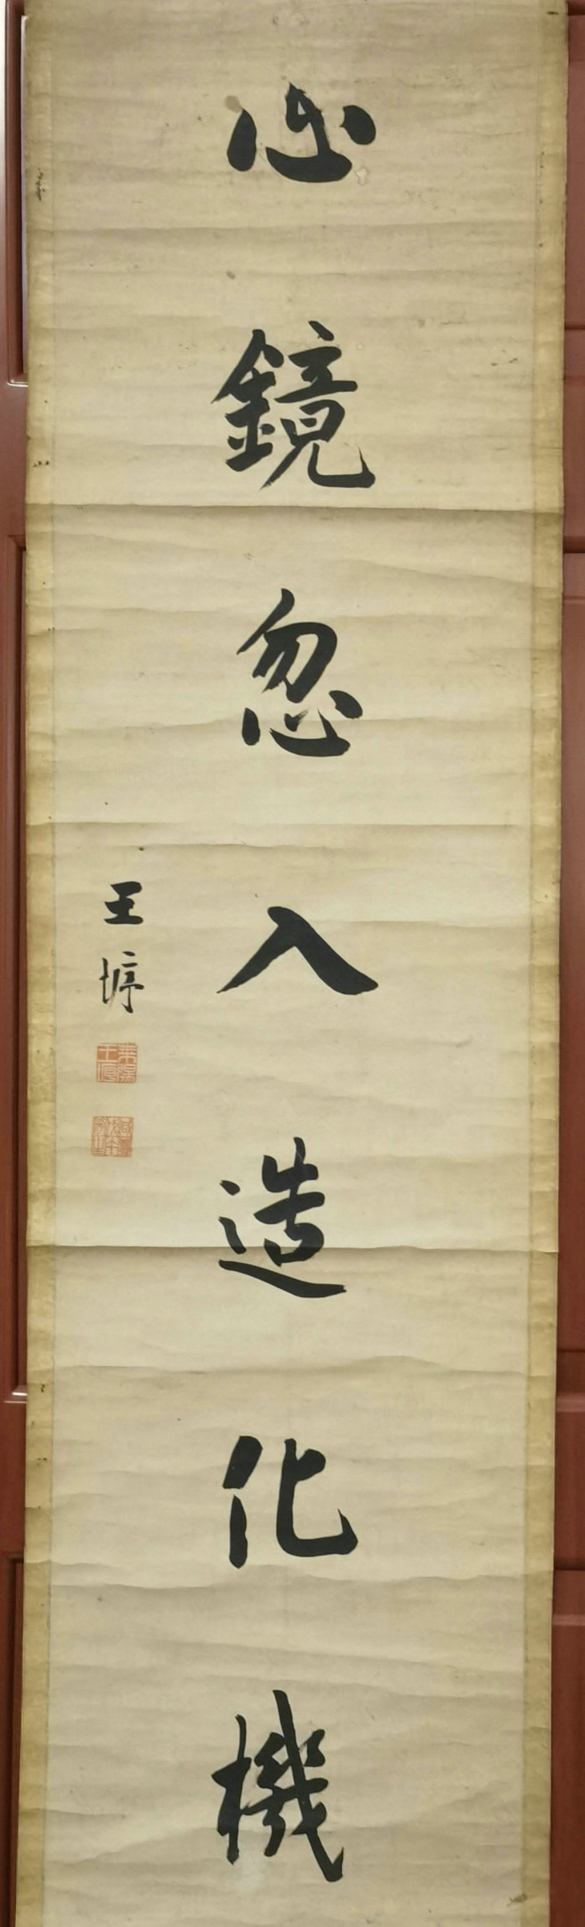 心鏡忽入造化機
王垿